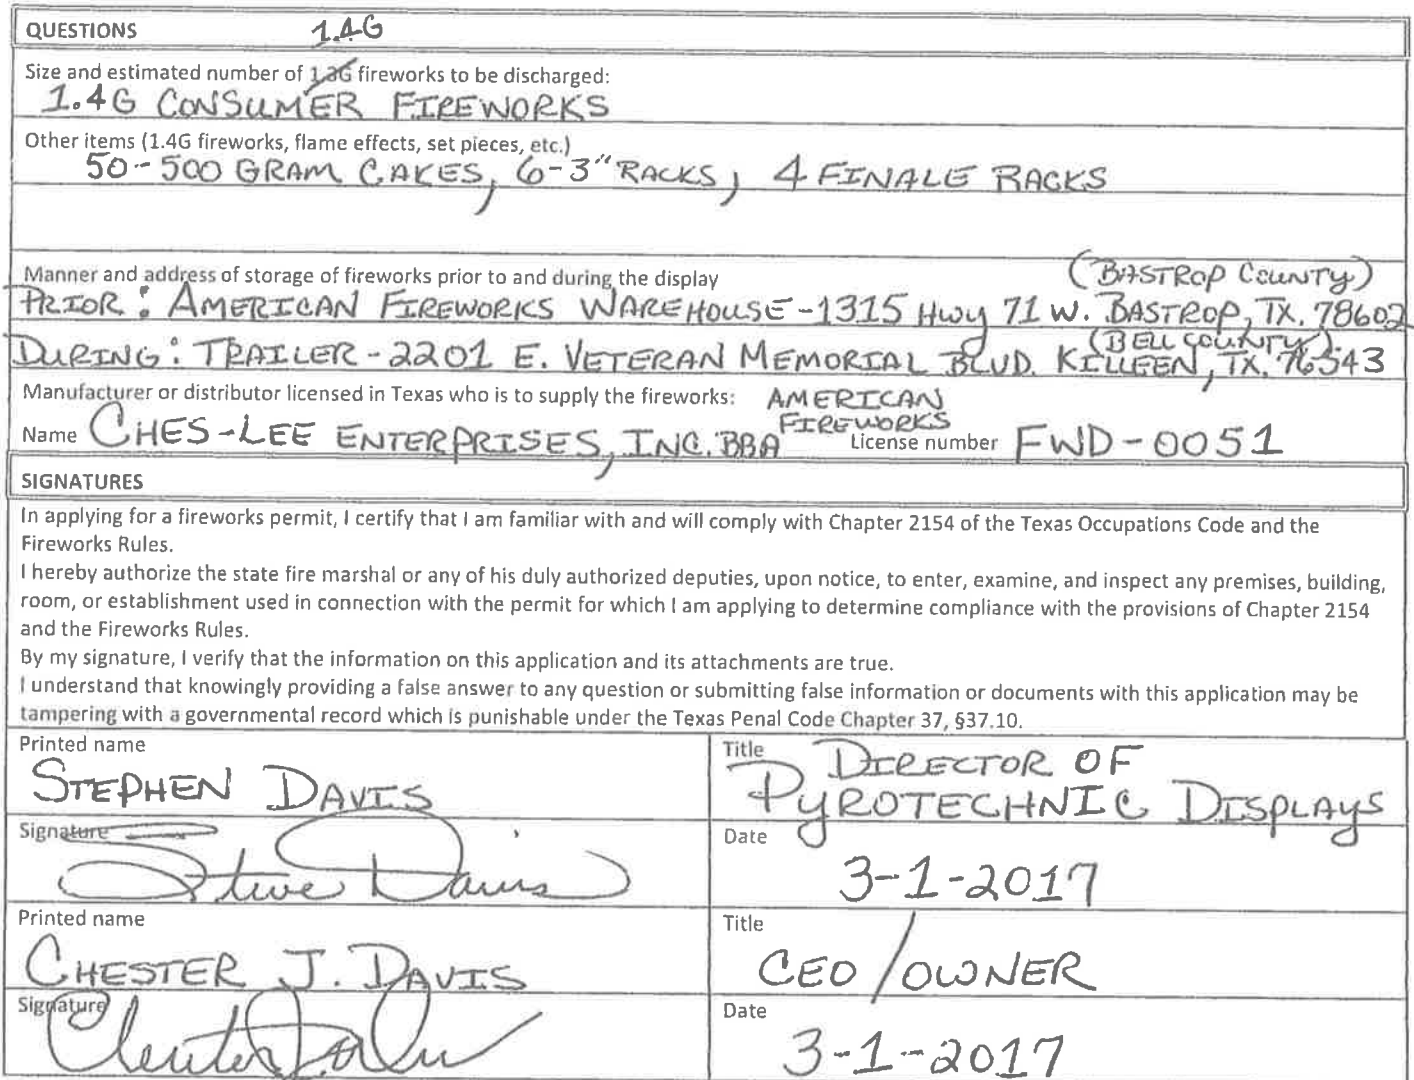 QUESTIONS 1.4G
Size and estimated number of 1.3G fireworks to be discharged:
1.4G CONSUMER FIREWORKS
Other items (1.4G fireworks, flame effects, set pieces, etc.)
50-500 GRAM CAKES, 6-3" RACKS, 4 FINALE RACKS
Manner and address of storage of fireworks prior to and during the display (BASTROP COUNTY)
PRIOR: AMERICAN FIREWORKS WAREHOUSE-1315 Hwy 71 W. BASTROP, TX. 78602
(BELL COUNTY)
DURING: TRAILER-2201 E. VETERAN MEMORIAL BLVD. KILLEEN, TX. 76543
Manufacturer or distributor licensed in Texas who is to supply the fireworks: AMERICAN
FIREWORKS
Name CHES-LEE ENTERPRISES, INC. DBA License number FWD-0051
SIGNATURES
In applying for a fireworks permit, I certify that I am familiar with and will comply with Chapter 2154 of the Texas Occupations Code and the
Fireworks Rules.
I hereby authorize the state fire marshal or any of his duly authorized deputies, upon notice, to enter, examine, and inspect any premises, building,
room, or establishment used in connection with the permit for which I am applying to determine compliance with the provisions of Chapter 2154
and the Fireworks Rules.
By my signature, I verify that the information on this application and its attachments are true.
I understand that knowingly providing a false answer to any question or submitting false information or documents with this application may be
tampering with a governmental record which is punishable under the Texas Penal Code Chapter 37, §37.10.
Printed name
STEPHEN DAVIS
Title DIRECTOR OF
PYROTECHNIC DISPLAYS
Signature
Steve Davis
Date
3-1-2017
Printed name
CHESTER J. DAVIS
Title
CEO/OWNER
Signature
Date
3-1-2017